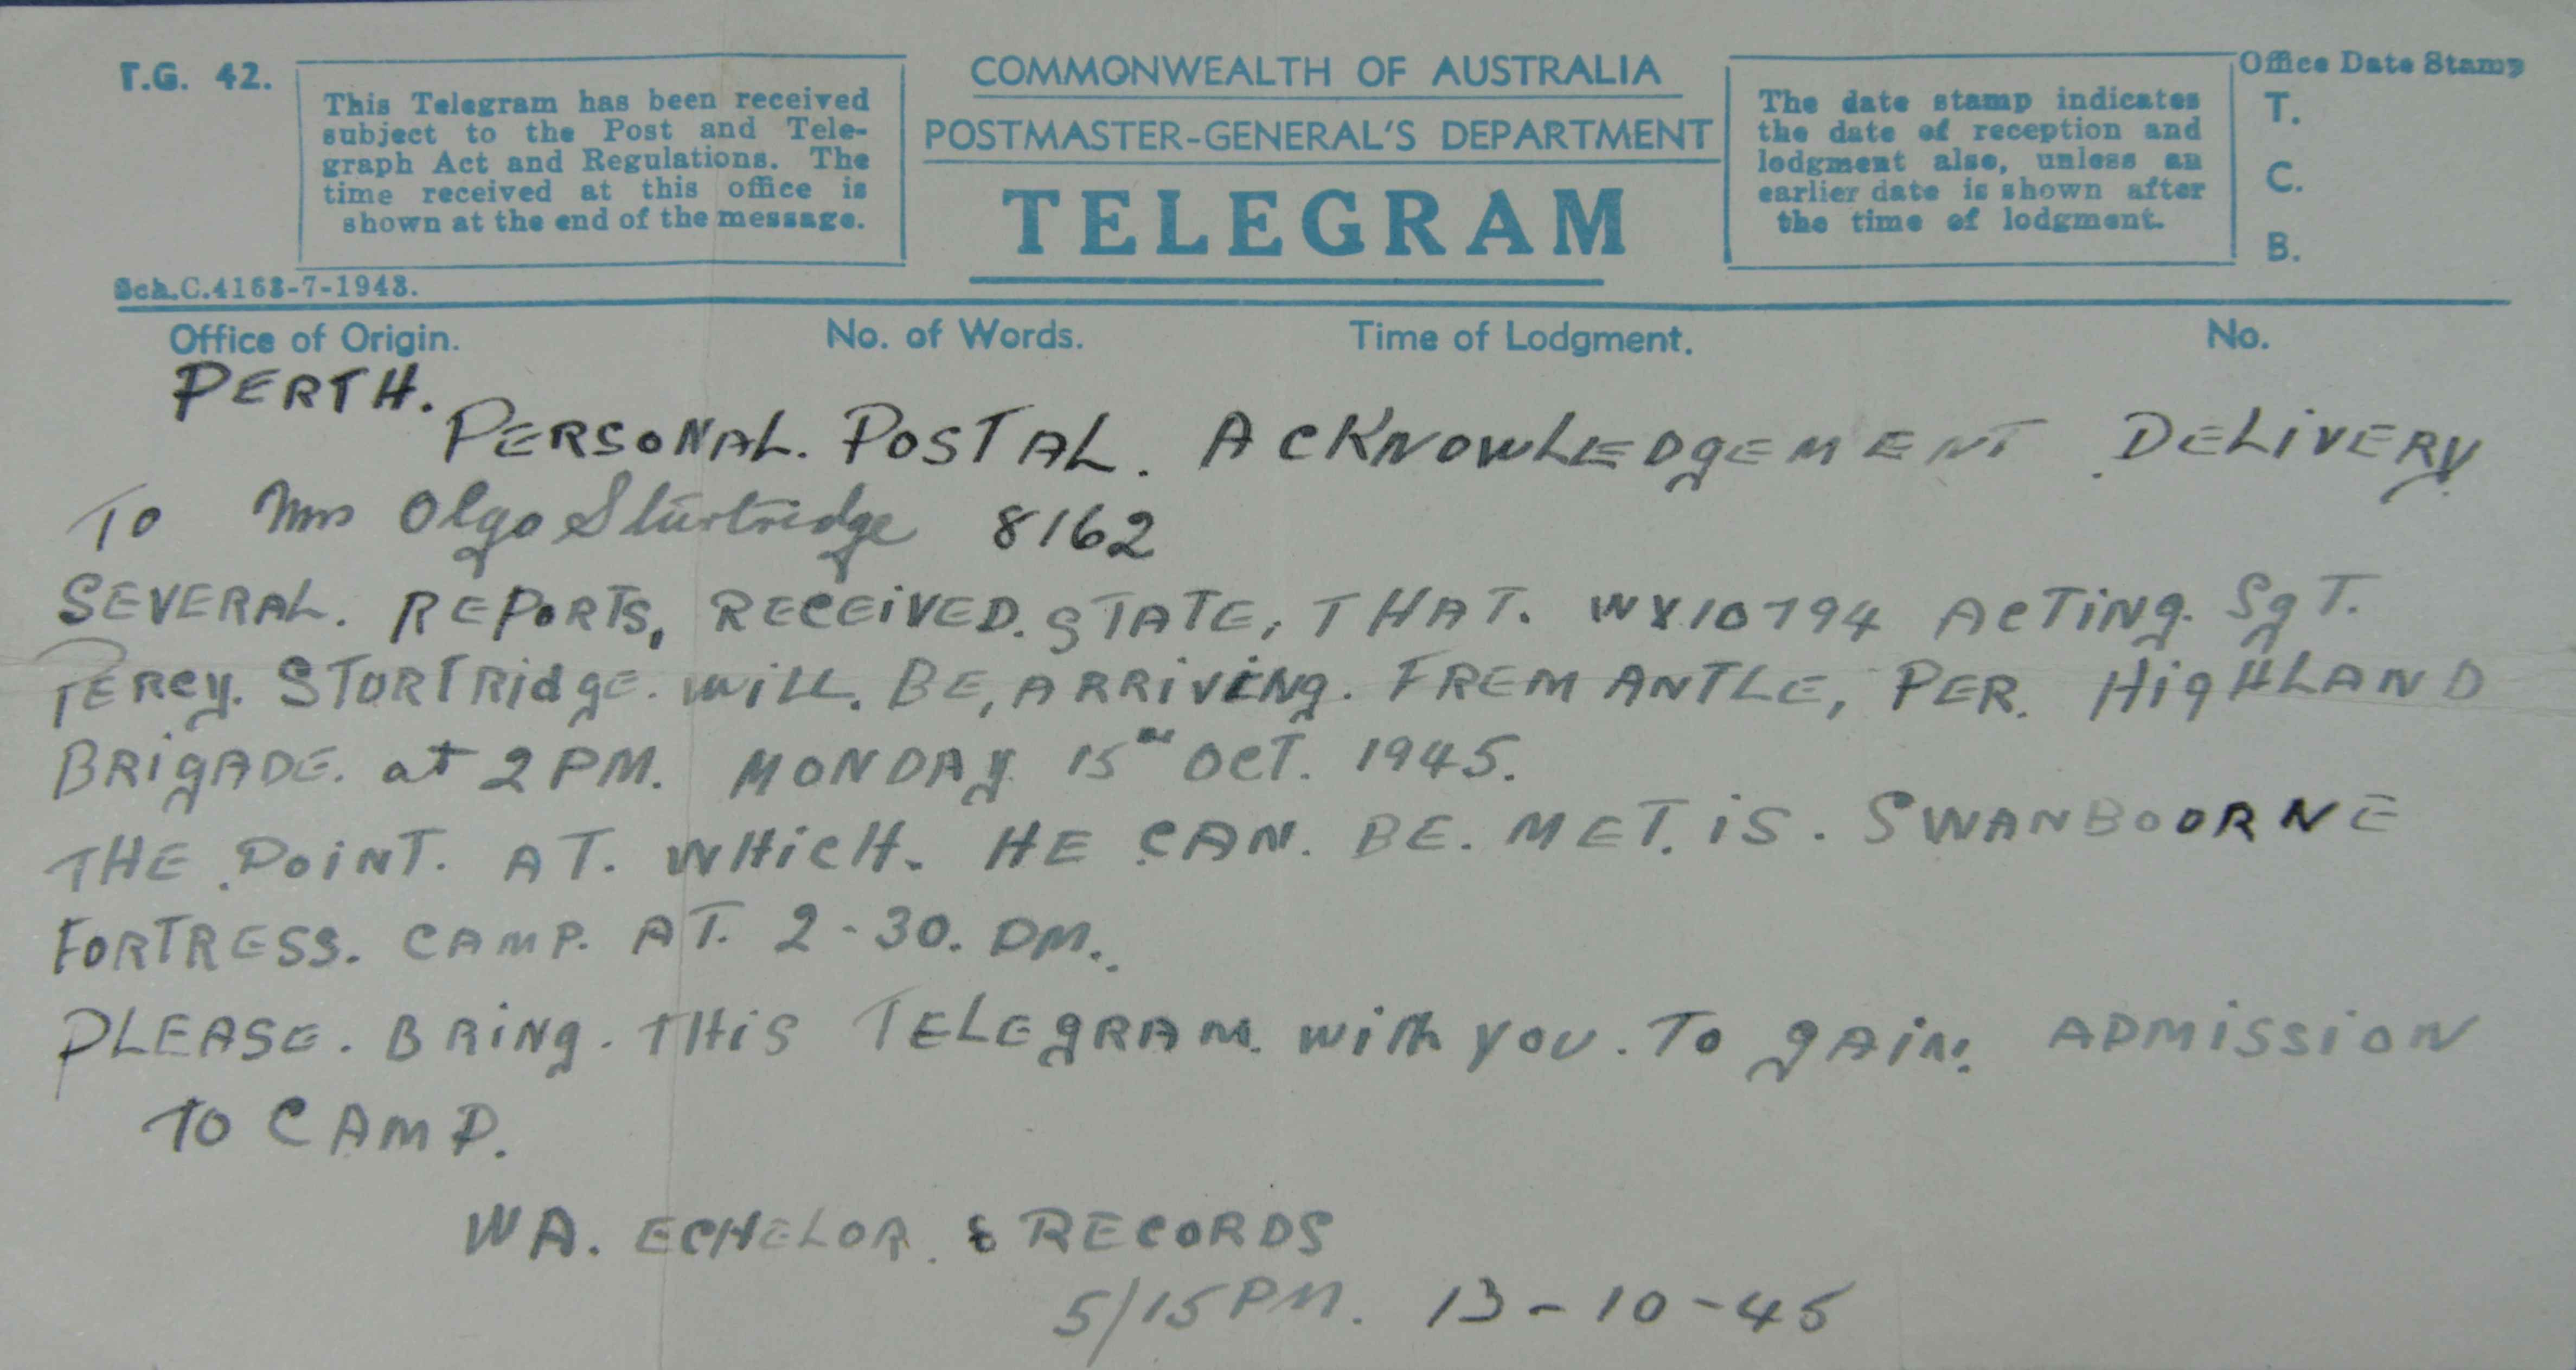 T.G. 42.
This Telegram has been received
subject to the Post and Tele-
graph Act and Regulations. The
time received at this office is
shown at the end of the message.
Sch.C.4163-7-1943.
COMMONWEALTH OF AUSTRALIA
POSTMASTER-GENERAL'S DEPARTMENT
TELEGRAM
The date stamp indicates
the date of reception and
lodgment also, unless an
earlier date is shown after
the time of lodgment.
Office Date Stamp
T.
C.
B.
Office of Origin. No. of Words. Time of Lodgment. No.
PERTH.
PERSONAL. POSTAL. ACKNOWLEDgEMENT DELiVERy
To Mrs Olga Sturtridge 8162
SEVERAL. REPORTS, RECEiVED. STATE, THAT. WX10794 ACTiNg. SgT.
PERCy. STURTRidgE. WiLL. BE, ARRiViNg. FREMANTLE, PER. HigHLAND
BRigADE. at 2 PM. MONDAy 15th OCT. 1945.
THE POiNT. AT. WHiCH. HE CAN. BE. MET. iS. SWANBOURNE
FORTRESS. CAMP. AT. 2-30. PM.
PLEASE. BRiNg. THiS TELEgRAM. with you. To gAiN. ADMiSSiON
TO CAMP.
WA. ECHELON. & RECORDS
5/15PM. 13-10-45